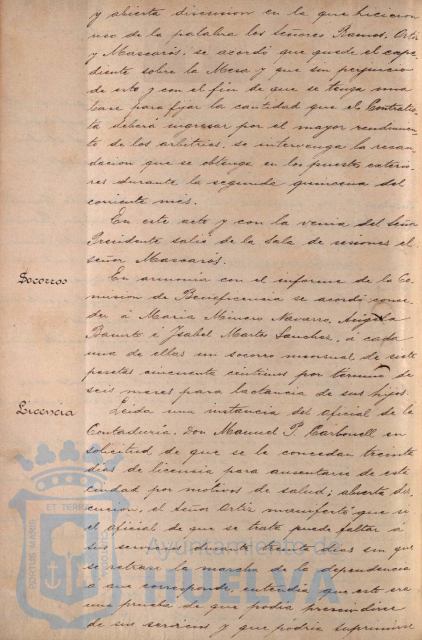 y abierta discusion en la que hicieron
uso de la palabra los Señores Ramos, Ortiz
y Mascarós; se acordó que quede el expe
diente sobre la Mesa y que sin perjuicio
de esto y con el fin de que se tenga una
base para fijar la cantidad que el Contratis
ta deberá ingresar por el mayor rendimien
to de los arbitrios, se intervenga la recau
dacion que se obtenga en los puestos exterio
res durante la segunda quincena del
corriente mes.
En este acto y con la venia del Señor
Presidente salió de la Sala de sesiones el
señor Mascarós.
Socorros
En armonia con el informe de la Co
mision de Beneficencia se acordó conce
der á Maria Minero Navarro, Angela
é Isabel Martos Sanchez, á cada
una de ellas un socorro mensual de siete
pesetas cincuenta centimos por término de
seis meses para lactancia de sus hijos.
Licencia
Leida una instancia del oficial de la
Contaduría, Don Manuel P. Carbonell en
solicitud de que se le concedan treinta
dias de licencia para ausentarse de esta
ciudad por motivos de salud; abierta dis
cusion, el Señor Ortiz manifestó que si
el oficial de que se trata puede faltar á
sus servicios durante treinta dias sin que
se retrase la marcha de la dependencia
a que corresponde, entendia que esto era
una prueba de que podia prescindirse
de sus servicios y que podria suprimirse
PORTUS MARIS
ET TERRÆ
CUSTODIA
Ayuntamiento de
HUELVA